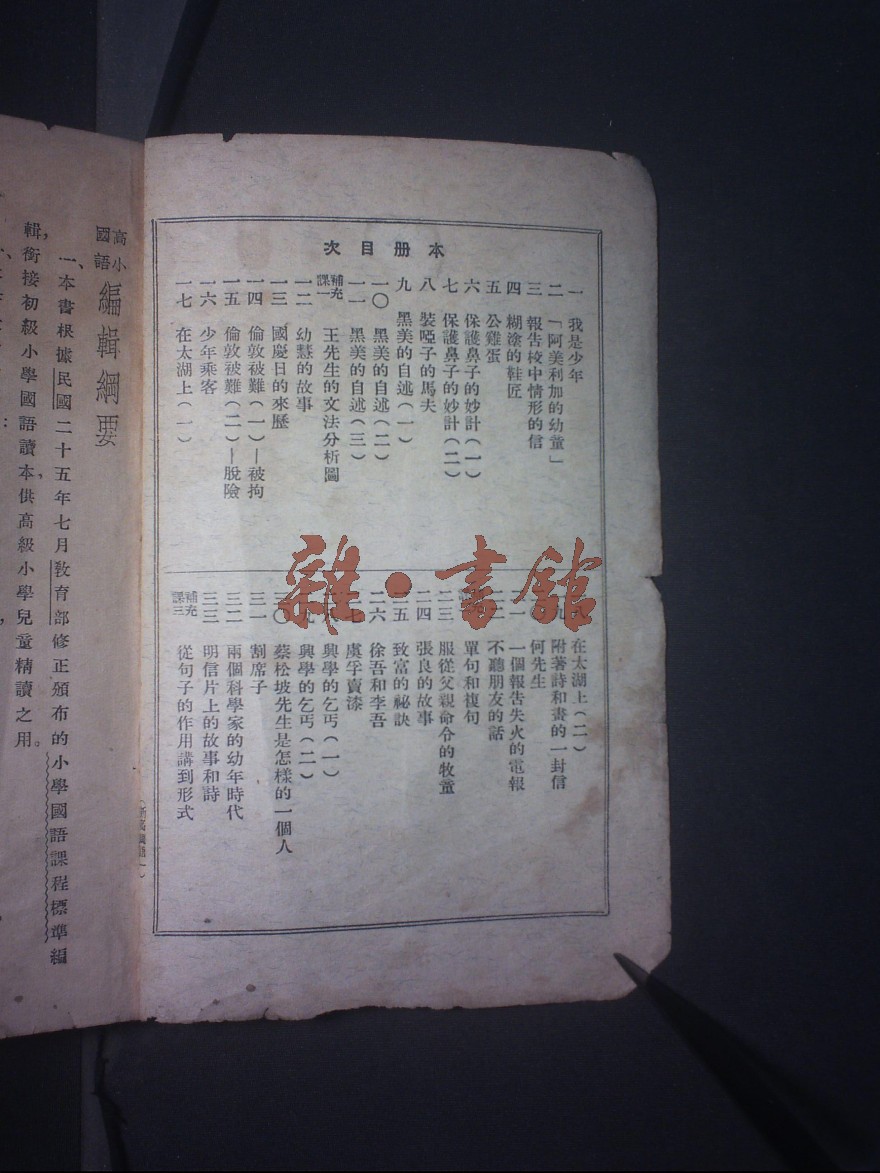 本册目次
一 我是少年
二 「阿美利加的幼童」
三 報告校中情形的信
四 糊塗的鞋匠
五 公雞蛋
六 保護鼻子的妙計(一)
七 保護鼻子的妙計(二)
八 裝啞子的馬夫
九 黑美的自述(一)
一〇 黑美的自述(二)
一一 黑美的自述(三)
補充課一 王先生的文法分析圖
一二 幼慧的故事
一三 國慶日的來歷
一四 倫敦被難(一)—被拘
一五 倫敦被難(二)—脫險
一六 少年乘客
一七 在太湖上(一)
在太湖上(二)
附著詩和畫的一封信
何先生
一個報告失火的電報
不聽朋友的話
單句和複句
二三 服從父親命令的牧童
二四 張良的故事
二五 致富的祕訣
二六 徐吾和李吾
虞孚賣漆
興學的乞丐(一)
興學的乞丐(二)
三〇 蔡松坡先生是怎樣的一個人
三一 割席子
三二 兩個科學家的幼年時代
三三 明信片上的故事和詩
補充課三 從句子的作用講到形式
雜·書館
高小國語 編輯綱要
一、本書根據民國二十五年七月教育部修正頒布的小學國語課程標準編
輯,銜接初級小學國語讀本,供高級小學兒童精讀之用。